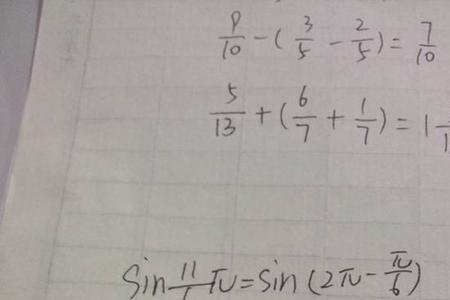 9/10 - ( 3/5 - 2/5 ) = 7/10
5/13 + ( 6/7 + 1/7 ) = 1
Sin 11/ π = sin ( 2π - π/6 )